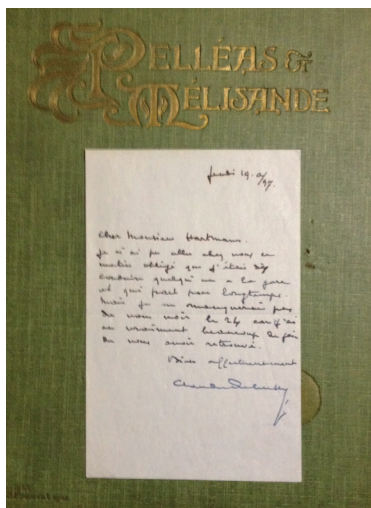 PELLÉAS &
MÉLISANDE
Jeudi 19.
Cher Monsieur Hartmann.
Je n'ai pu aller chez vous ce
matin obligé que j'étais
conduire quelqu'un à la gare
et qui part pour longtemps.
Mais je ne manquerai pas
de vous voir le 24 car j'ai
eu vraiment beaucoup de joie
de vous avoir retrouvé.
Bien affectueusement
Claude Debussy